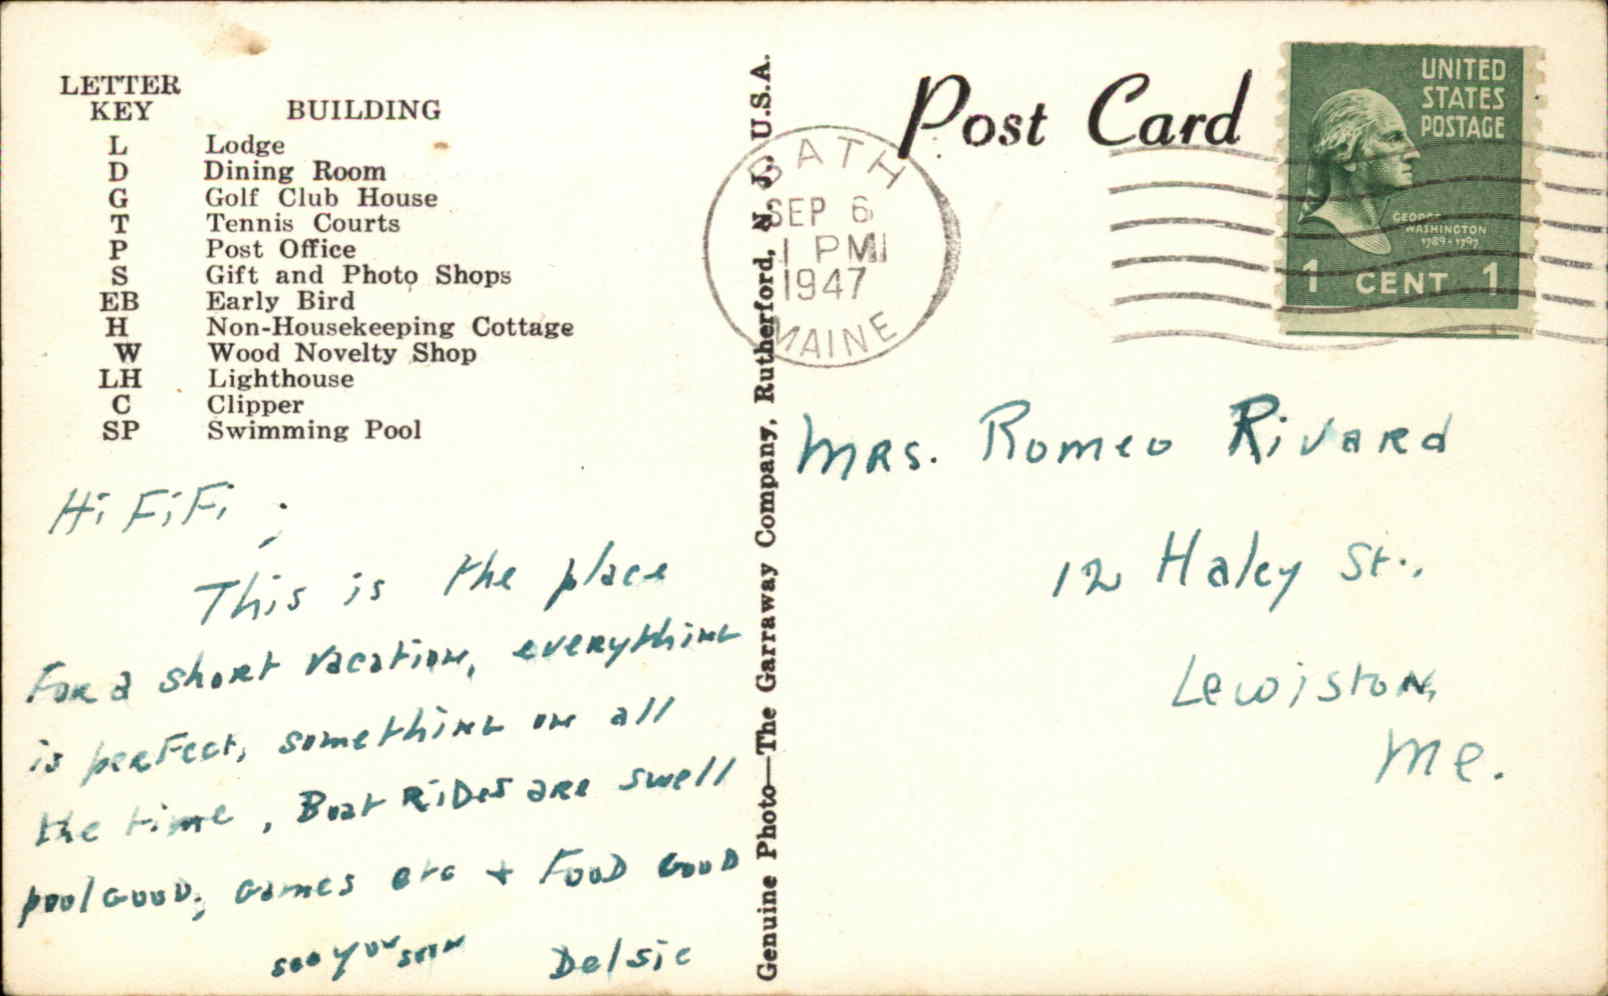 LETTER
KEY BUILDING
L Lodge
D Dining Room
G Golf Club House
T Tennis Courts
P Post Office
S Gift and Photo Shops
EB Early Bird
H Non-Housekeeping Cottage
W Wood Novelty Shop
LH Lighthouse
C Clipper
SP Swimming Pool
Hi FiFi,
This is the place
For a short vacation, everything
is perfect, something on all
the time, Boat Rides are swell
pool Good, Games etc + Food Good
see you soon Delsie
Genuine Photo—The Garraway Company, Rutherford, N. J., U.S.A.
Post Card
BATH
SEP 6
1 PM
1947
MAINE
UNITED
STATES
POSTAGE
GEORGE
WASHINGTON
1789-1797
1 CENT 1
Mrs. Romeo Rivard
12 Haley St.,
Lewiston,
Me.